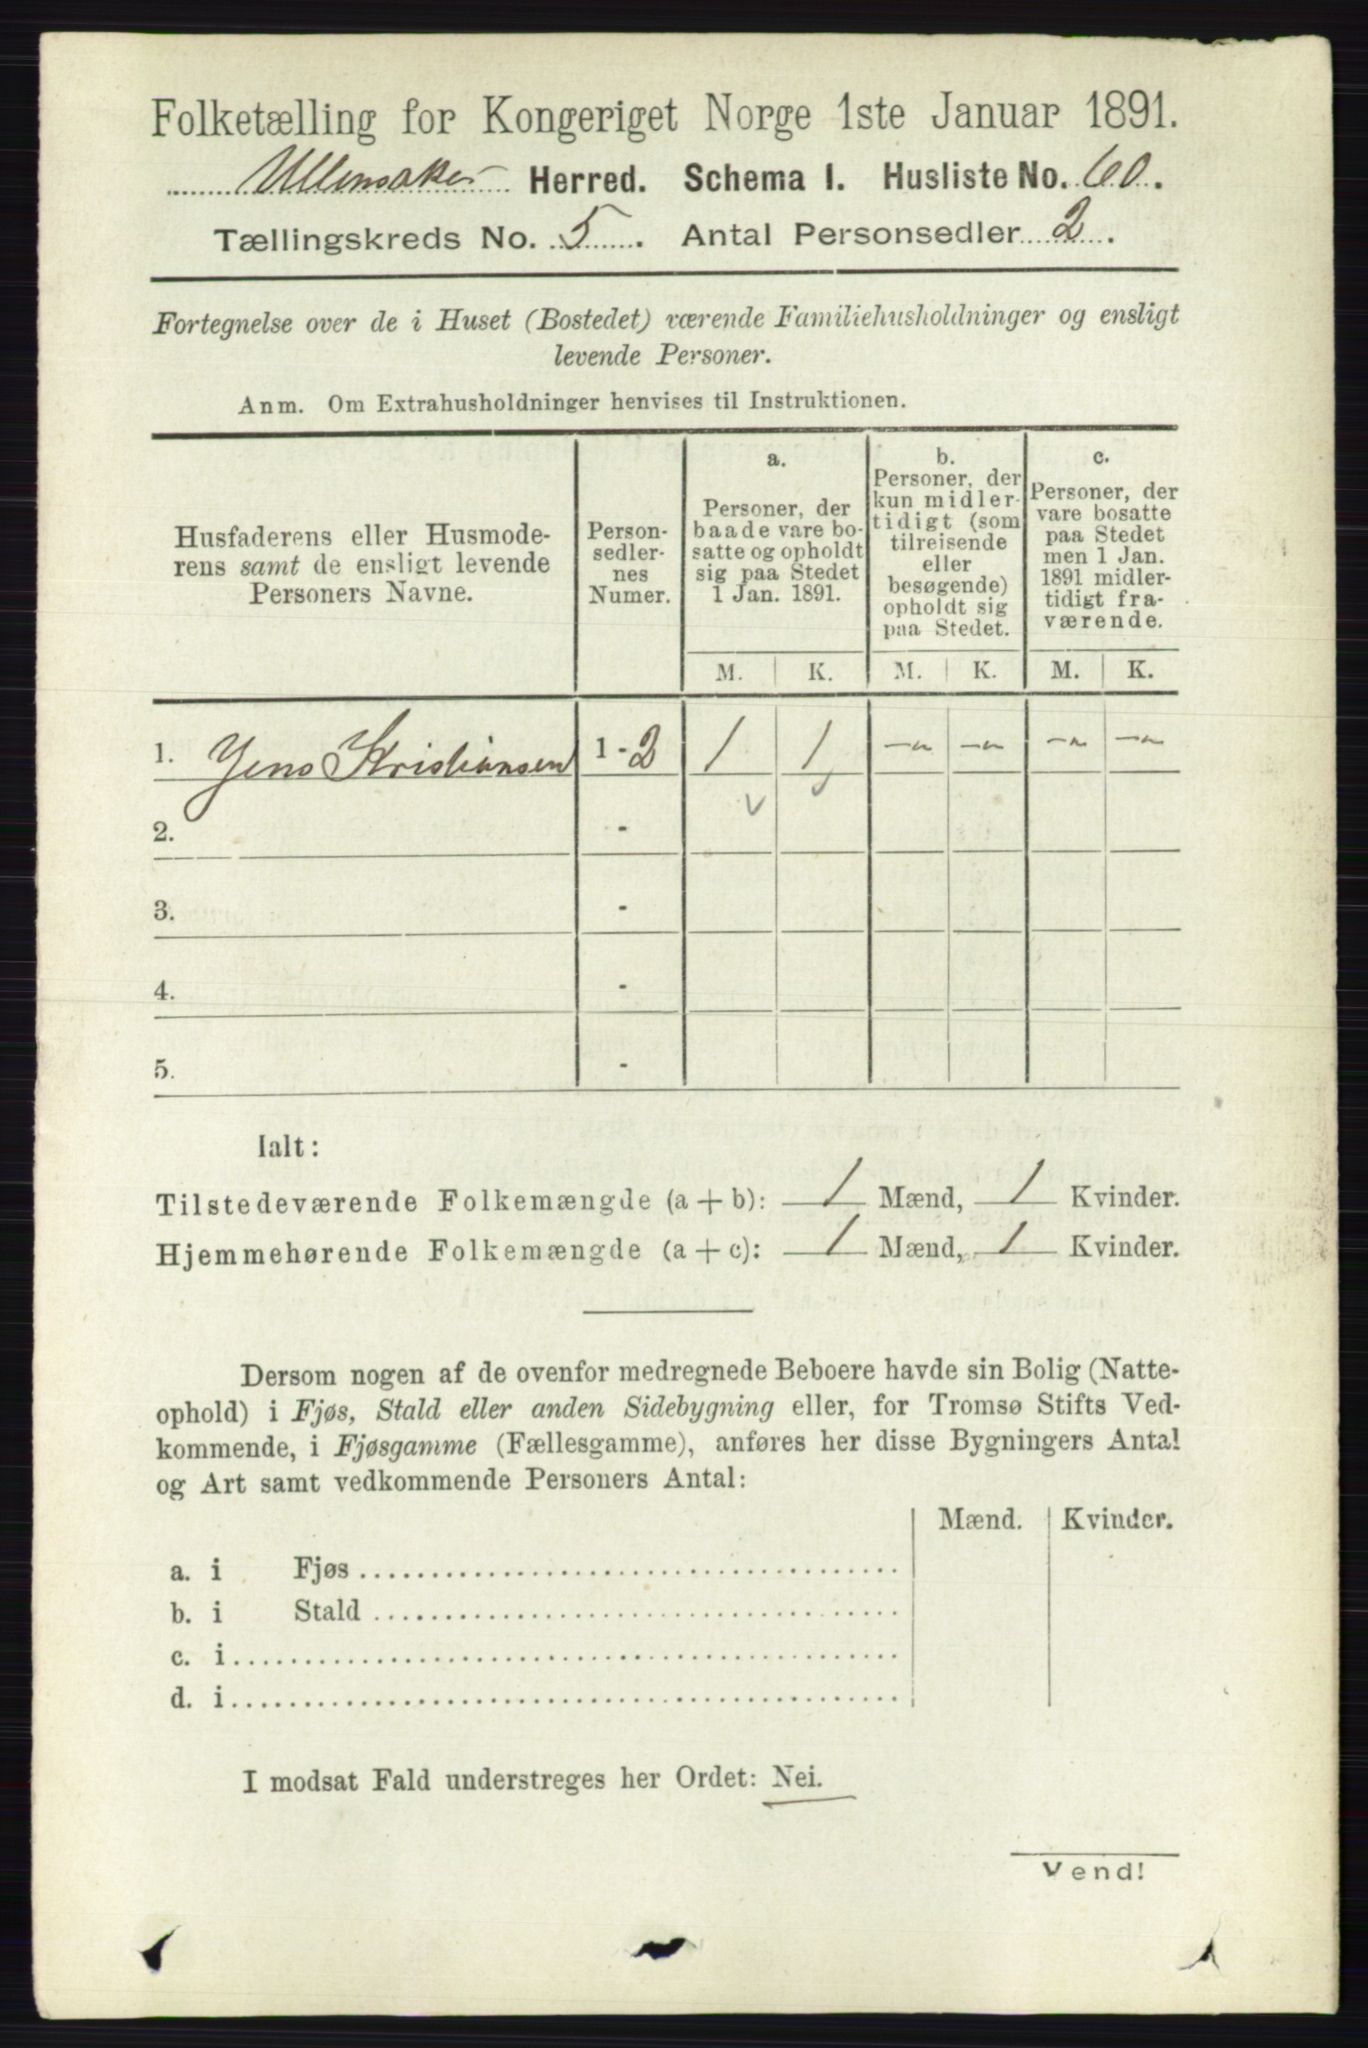 Folketælling for Kongeriget Norge 1ste Januar 1891.
Ullensaker Herred. Schema I. Husliste No. 60.
Tællingskreds No. 5. Antal Personsedler 2.
Fortegnelse over de i Huset (Bostedet) værende Familiehusholdninger og ensligt
levende Personer.
Anm. Om Extrahusholdninger henvises til Instruktionen.
Husfaderens eller Husmode-
rens samt de ensligt levende
Personers Navne.
Person-
sedler-
nes
Numer.
a.
Personer, der
baade vare bo-
satte og opholdt
sig paa Stedet
1 Jan. 1891.
b.
Personer, der
kun midler-
tidigt (som
tilreisende
eller
besøgende)
opholdt sig
paa Stedet.
c.
Personer, der
vare bosatte
paa Stedet
men 1 Jan.
1891 midler-
tidigt fra-
værende.
M. K. M. K. M. K.
1. Jens Kristiansen 1 - 2 1 1 -„- -„- -„- -„-
2. -
3. -
4. -
5. -
Ialt:
Tilstedeværende Folkemængde (a + b): 1 Mænd, 1 Kvinder.
Hjemmehørende Folkemængde (a + c): 1 Mænd, 1 Kvinder.
Dersom nogen af de ovenfor medregnede Beboere havde sin Bolig (Natte-
ophold) i Fjøs, Stald eller anden Sidebygning eller, for Tromsø Stifts Ved-
kommende, i Fjøsgamme (Fællesgamme), anføres her disse Bygningers Antal
og Art samt vedkommende Personers Antal:
Mænd. Kvinder.
a. i Fjøs
b. i Stald
c. i
d. i
I modsat Fald understreges her Ordet: Nei.
Vend!